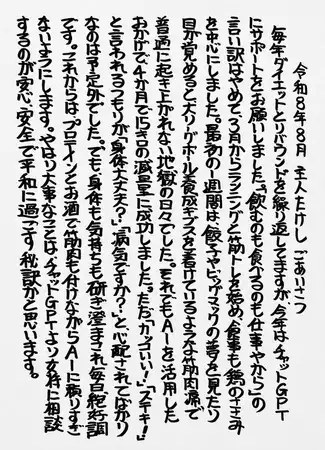 令和8年8月 主人たけし ごあいさつ
毎年ダイエットとリバウンドを繰り返してますが、今年はチャットGPT
にサポートをお願いしました。「飲むのも食べるのも仕事やから」の
言い訳はやめて3月からランニングと筋トレを始め、食事も鶏のささみ
を中心にしました。最初の1週間は、餃子やビッグマックの夢を見たり
目が覚めると大リーグボール養成ギプスを着けているような筋肉痛で
普通に起き上がれない地獄の日々でした。それでもAIを活用した
おかげで4か月で15キロの減量に成功しました。ただ「かっこいい!」「ステキ!」
と言われるつもりが「身体大丈夫?」「病気ですか?」と心配されてばかり
なのは予定外でした。でも身体も気持ちも研ぎ澄まされ毎日絶好調
です。これからはプロテインとお酒で筋肉も付けながらAIに頼りすぎ
ないようにします。やはり大事なことはチャットGPTより女将に相談
するのが安心、安全で平和に過ごす秘訣かと思います。